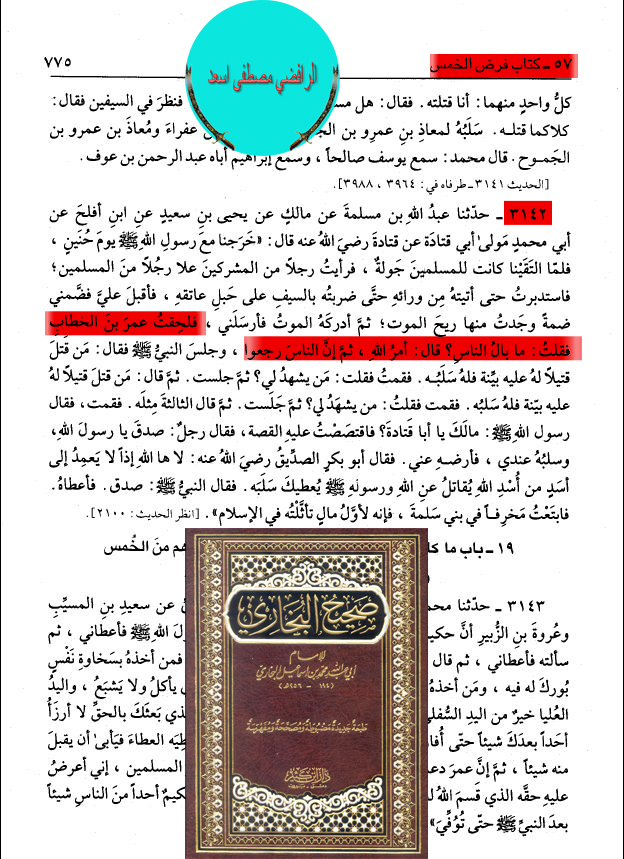 ٥٧ ـ كتاب فرض الخمس
٧٧٥
الرافضي مصطفى اسعد
كلُّ واحدٍ منهما: أنا قتلته. فقال: هل مس فنظرَ في السيفين فقال:
كلاكما قتلـه. سَلَبُهُ لمعاذِ بنِ عمرِو بن الجـ عفراءَ ومُعاذَ بن عمرو بن
الجَمـوح. قال محمد: سمع يوسف صالحاً، وسمعَ إبراهيم أباه عبد الرحمن بن عوف.
[الحديث ٣١٤١ ـ طرفاه في: ٣٩٦٤، ٣٩٨٨].
٣١٤٢ ـ حدّثنا عبدُ اللهِ بن مسلمةَ عن مالكٍ عن يحيى بنِ سعيدٍ عنِ ابنِ أفلحَ عن
أبي محمدٍ مَولىٰ أبي قتادَة عن قتادةَ رضيَ اللهُ عنه قال: «خَرَجنا معَ رسولِ اللهِ ﷺ يومَ حُنَينٍ،
فلمّا التَقَيْنا كانت للمسلمينَ جَولةٌ، فرأيتُ رجلاً من المشركينَ علا رجُلاً منَ المسلمين؛
فاستدبرتُ حتى أتيتهُ مِن ورائهِ حتَّى ضربتُه بالسيفِ على حَبلِ عاتقهِ، فأقبلَ عليَّ فضَمَّني
ضمةً وجَدتُ منها ريحَ الموت؛ ثمَّ أدركهُ الموتُ فأرسَلَني، فلحِقتُ عمرَ بنَ الخطابِ
فقلتُ: ما بالُ الناسِ؟ قال: أمرُ اللهِ، ثمَّ إنَّ الناسَ رجعوا، وجلسَ النبيُّ ﷺ فقال: مَن قتلَ
قتيلاً لهُ عليه بيِّنة فلهُ سلَبُـه. فقمتُ فقلت: مَن يشهدُ لي؟ ثمَّ جلست. ثمَّ قال: مَن قتلَ قتيلاً لهُ
عليه بيّنة فلهُ سَلبُه. فقمت فقلتُ: من يشهَدُ لي؟ ثمَّ جَلَست. ثمَّ قال الثالثةَ مِثلَه. فقمت، فقال
رسول اللهِ ﷺ: مالَكَ يا أبا قتادةَ؟ فاقتصَصْتُ عليهِ القصة، فقال رجلٌ: صدقَ يا رسولَ اللهِ،
وسلبُهُ عندي، فأرضـهِ عني. فقال أبو بكرٍ الصدِّيقُ رضيَ اللهُ عنه: لا ها اللهِ إذاً لا يَعمِدُ إلى
أسَدٍ من أُسْدِ اللهِ يُقاتلُ عنِ اللهِ ورسولهِ ﷺ يُعطيكَ سَلَبَه. فقال النبيُّ ﷺ: صدق. فأعطاهُ.
فابتَعْتُ مَخرفـاً في بني سَلمةَ، فإنه لأوَّلُ مالٍ تأثَّلْتُه في الإسلام». [انظر الحديث: ٢١٠٠].
١٩ ـ باب ما كا هم منَ الخُمس
٣١٤٣ ـ حدّثنا محمـ عن سعيدِ بنِ المسيِّبِ
وعُروةَ بن الزُّبيرِ أنَّ حكيـ ولَ اللهِ ﷺ فأعطاني، ثم
سألته فأعطاني، ثم قال فمن أخذهُ بسَخاوةِ نَفْسٍ
بُوركَ له فيه، ومَن أخذهُ يأكلُ ولا يَشبَعُ، واليدُ
العُليا خيرٌ من اليدِ السُّفلـ لذي بَعثَكَ بالحقِّ لا أرزَأُ
أحداً بعدَكَ شيئاً حتّى أُفا ـطِيَه العطاءَ فيَأبىٰ أن يقبلَ
منه شيئاً، ثمَّ إنَّ عمرَ دعـ المسلمين، إني أعرضُ
عليهِ حقَّه الذي قسمَ اللهُ لـ كيمٌ أحداً منَ الناسِ شيئاً
بعدَ النبيِّ ﷺ حتّى تُوُفِّيَ»
صحيح البخاري
للإمام
أبي عبد الله محمد بن إسماعيل البخاري
(١٩٤ - ٢٥٦ هـ)
طبعة جديدة مضبوطة ومصححة ومفهرسة
دار ابن كثير
دمشق - بيروت